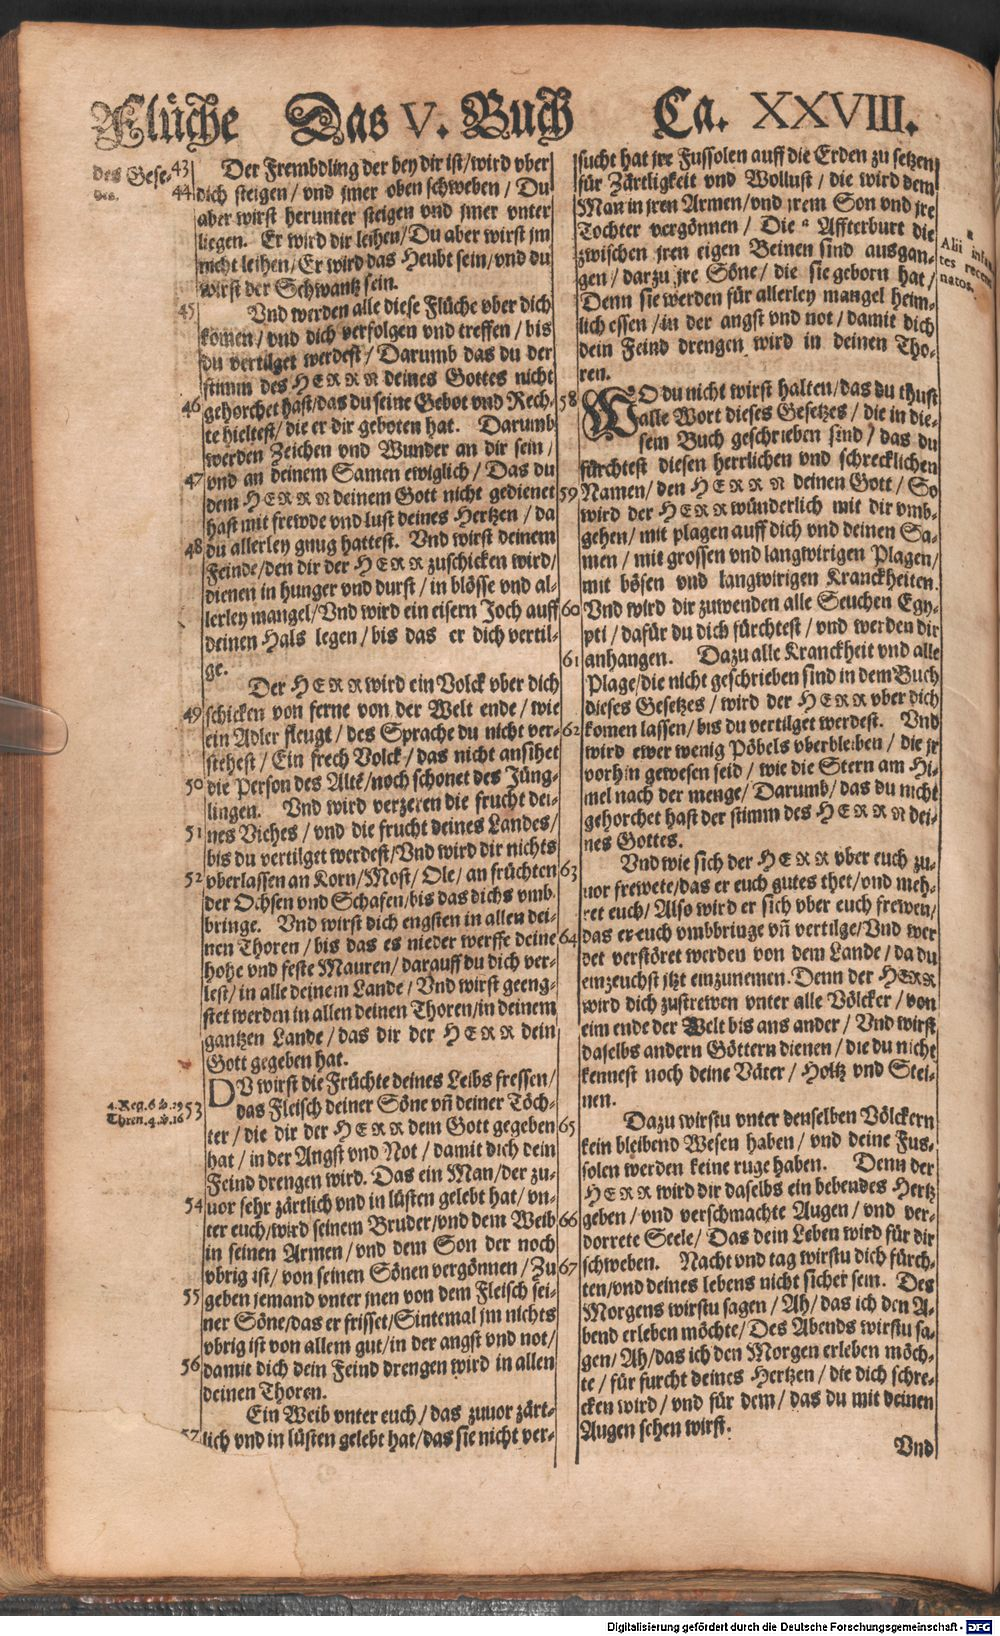 Flüche Das V. Buch Ca. XXVIII.
des Gese-
tzes.
43 Der Frembdling der bey dir ist/wird vber
44 dich steigen / vnd jmer oben schweben / Du
aber wirst herunter steigen vnd jmer vnter
liegen. Er wird dir leihen/Du aber wirst jm
nicht leihen/Er wird das Heubt sein/vnd du
wirst der Schwantz sein.
45 Vnd werden alle diese Flüche vber dich
komen / vnd dich verfolgen vnd treffen / bis
du vertilget werdest / Darumb das du der
stimm des HERRN deines Gottes nicht
46 gehorchet hast/das du seine Gebot vnd Rech-
te hieltest/die er dir geboten hat. Darumb
werden Zeichen vnd Wunder an dir sein /
47 vnd an deinem Samen ewiglich / Das du
dem HERRN deinem Gott nicht gedienet
hast mit frewde vnd lust deines Hertzen / da
48 du allerley gnug hattest. Vnd wirst deinem
Feinde/den dir der HERR zuschicken wird/
dienen in hunger vnd durst / in blösse vnd al-
lerley mangel/Vnd wird ein eisern Joch auff
deinen Hals legen / bis das er dich vertil-
ge.
Der HERR wird ein Volck vber dich
49 schicken von ferne von der Welt ende / wie
ein Adler fleugt / des Sprache du nicht ver-
stehest / Ein frech Volck / das nicht ansihet
50 die Person des Altē/noch schonet des Jüng-
lingen. Vnd wird verzeren die frucht dei-
51 nes Viches / vnd die frucht deines Landes/
bis du vertilget werdest/Vnd wird dir nichts
52 vberlassen an Korn/Most / Ole / an früchten
der Ochsen vnd Schafen/bis das dichs vmb
bringe. Vnd wirst dich engsten in allen dei-
nen Thoren / bis das es nieder werffe deine
hohe vnd feste Mauren/ darauff du dich ver-
lest/ in alle deinem Lande / Vnd wirst geeng-
stet werden in allen deinen Thoren/in deinem
gantzen Lande / das dir der HERR dein
Gott gegeben hat.
DV wirst die Früchte deines Leibs fressen/
4. Reg. 6. v. 29
Thren. 4. v. 10
53 das Fleisch deiner Söne vñ deiner Töch-
ter / die dir der HERR dem Gott gegeben
hat / in der Angst vnd Not / damit dich dein
Feind drengen wird. Das ein Man/der zu-
54 uor sehr zärtlich vnd in lüsten gelebt hat/ vn-
ter euch/wird seinem Bruder/vnd dem Weib
in seinen Armen / vnd dem Son der noch
vbrig ist / von seinen Sönen vergönnen / Zu
55 geben jemand vnter jnen von dem Fleisch sei-
ner Söne/das er frisset/Sintemal jm nichts
vbrig ist von allem gut/in der angst vnd not/
56 damit dich dein Feind drengen wird in allen
deinen Thoren.
Ein Weib vnter euch / das zuuor zärt-
57 lich vnd in lüsten gelebt hat/das sie nicht ver-
sucht hat jre Fussolen auff die Erden zu setzen
für Zärtligkeit vnd Wollust / die wird dem
Man in jren Armen/vnd jrem Son vnd jre
Tochter vergönnen / Die a Affterburt die
zwischen jren eigen Beinen sind ausgan-
gen / darzu jre Söne / die sie geborn hat /
Denn sie werden für allerley mangel heim-
lich essen / in der angst vnd not / damit dich
dein Feind drengen wird in deinen Tho-
ren.
a
Alii
tes
natos.
58 WO du nicht wirst halten/das du thust
alle Wort dieses Gesetzes / die in die-
sem Buch geschrieben sind / das du
fürchtest diesen herrlichen vnd schrecklichen
59 Namen/ den HERRN deinen Gott / So
wird der HERR wünderlich mit dir vmb-
gehen/ mit plagen auff dich vnd deinen Sa-
men / mit grossen vnd langwirigen Plagen/
mit bösen vnd langwirigen Kranckheiten.
60 Vnd wird dir zuwenden alle Seuchen Egy-
pti / dafür du dich fürchtest / vnd werden dir
61 anhangen. Dazu alle Kranckheit vnd alle
Plage/die nicht geschrieben sind in dem Buch
dieses Gesetzes / wird der HERR vber dich
62 komen lassen/ bis du vertilget werdest. Vnd
wird ewer wenig Pöbels vberbleiben / die jr
vorhin gewesen seid / wie die Stern am Hi-
mel nach der menge/ Darumb/ das du nicht
gehorchet hast der stimm des HERRN dei-
nes Gottes.
63 Vnd wie sich der HERR vber euch zu-
uor frewete/das er euch gutes thet/vnd meh-
ret euch/ Also wird er sich vber euch frewen/
64 das er euch vmbbringe vñ vertilge/Vnd wer
det verstöret werden von dem Lande / da du
einzeuchst jtzt einzunemen. Denn der HERR
wird dich zustrewen vnter alle Völcker / von
eim ende der Welt bis ans ander / Vnd wirst
daselbs andern Göttern dienen / die du nicht
kennest noch deine Väter / Holtz vnd Stei-
nen.
65 Dazu wirstu vnter denselben Völckern
kein bleibend Wesen haben / vnd deine Fus-
solen werden keine ruge haben. Denn der
HERR wird dir daselbs ein bebendes Hertz
66 geben / vnd verschmachte Augen / vnd ver-
dorrete Seele / Das dein Leben wird für dir
67 schweben. Nacht vnd tag wirstu dich fürch-
ten/vnd deines lebens nicht sicher sein. Des
Morgens wirstu sagen / Ah / das ich den A-
bend erleben möchte/ Des Abends wirstu sa-
gen/ Ah/das ich den Morgen erleben möch-
te / für furcht deines Hertzen / die dich schre-
cken wird / vnd für dem / das du mit deinen
Augen sehen wirst.
Vnd
Digitalisierung gefördert durch die Deutsche Forschungsgemeinschaft - DFG